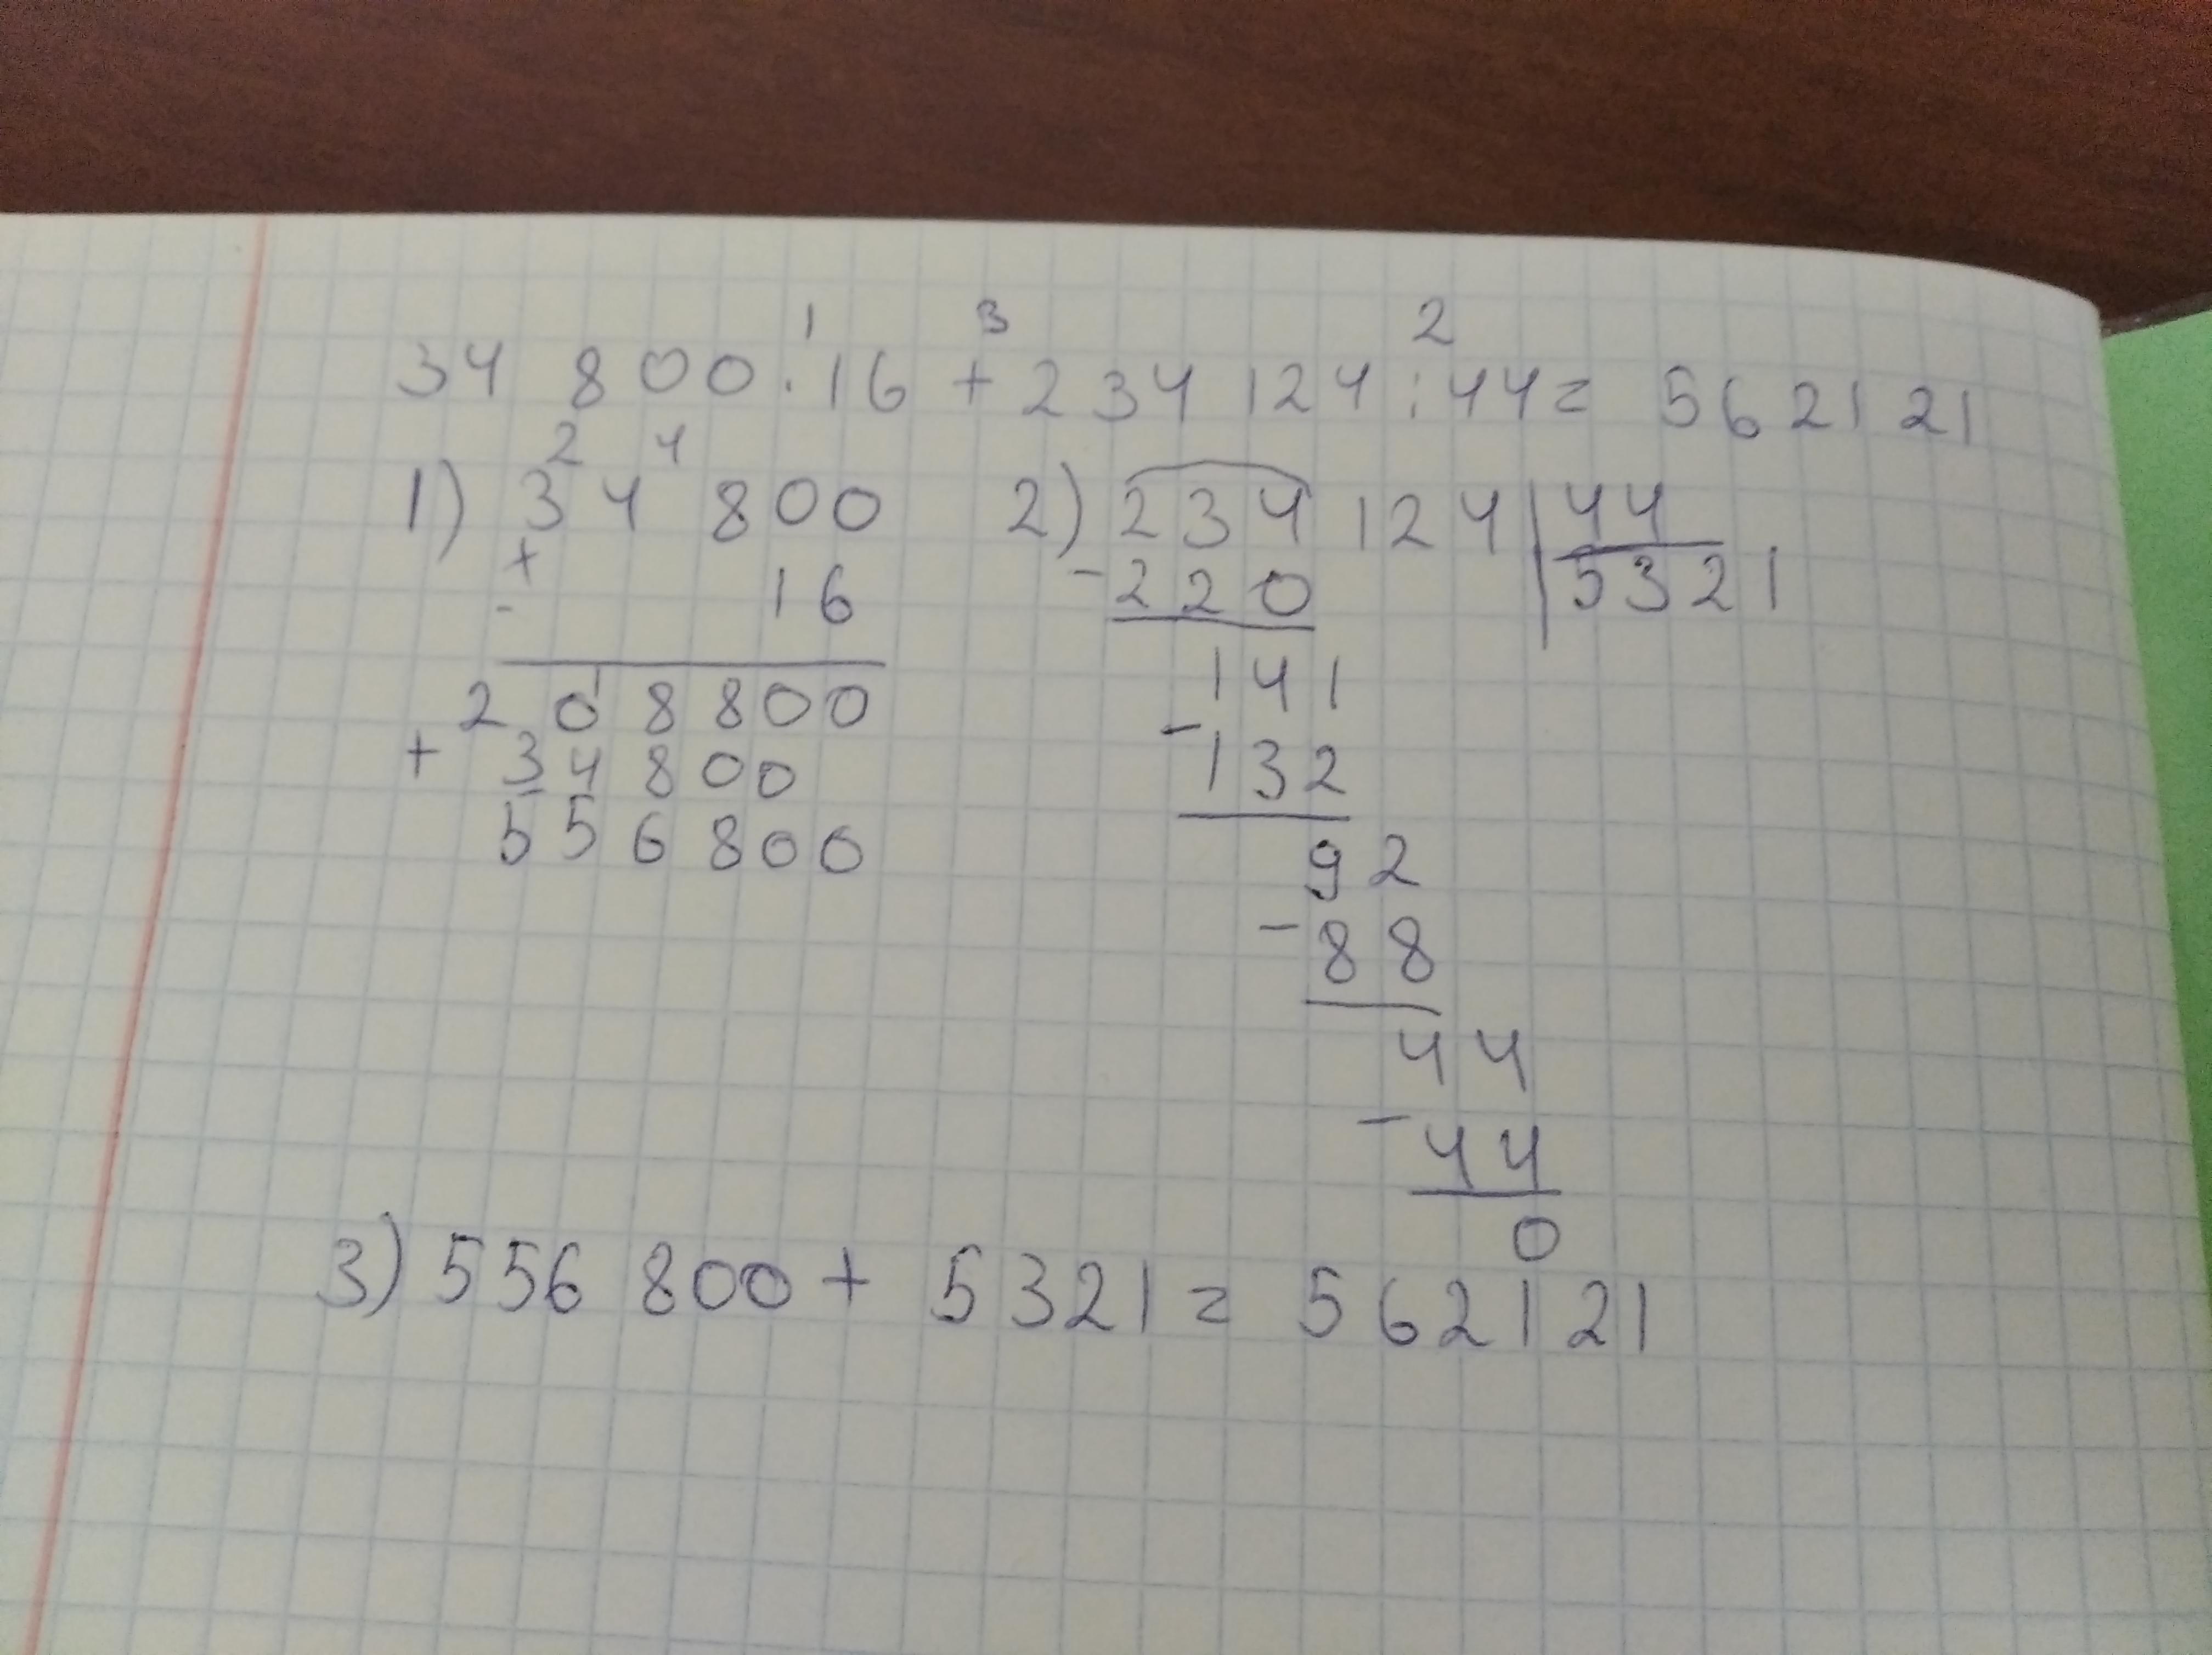 1 3 2
34 800 · 16 + 234 124 : 44 = 562 121
2 4
1) 34 800
×
16
208 800
+ 34 800
556 800
2) 234 124 | 44
- 220 | 5321
141
- 132
92
- 88
44
- 44
0
3) 556 800 + 5 321 = 562 121